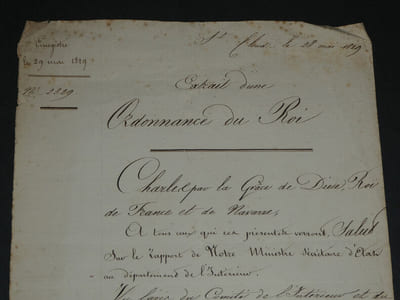 Enregistré
le 29 mai 1829
N° 2829
St Cloud, le 28 mai 1829
Extrait d'une
Ordonnance du Roi
Charles, par la Grâce de Dieu, Roi
de France et de Navarre,
A tous ceux qui ces présentes verront, Salut
Sur le rapport de Notre Ministre Secrétaire d'Etat
au département de l'Intérieur.
Vu l'avis du Comité de l'Intérieur et du